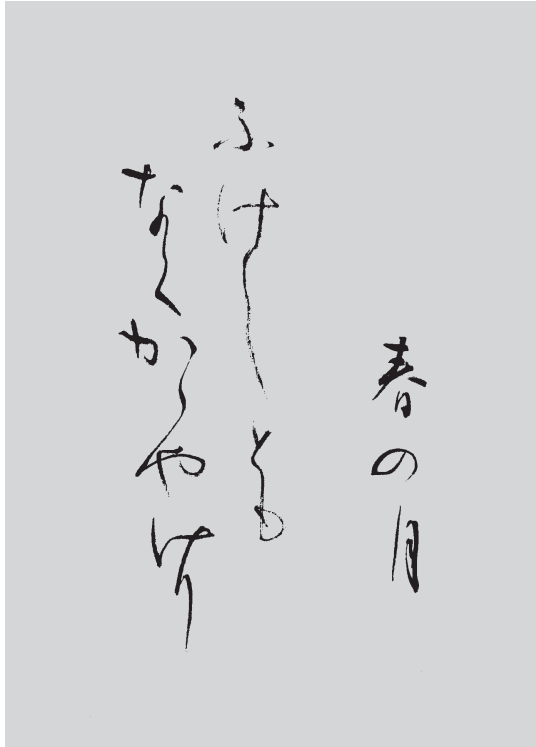 春の月
ふけしとも
なくかゝやけり